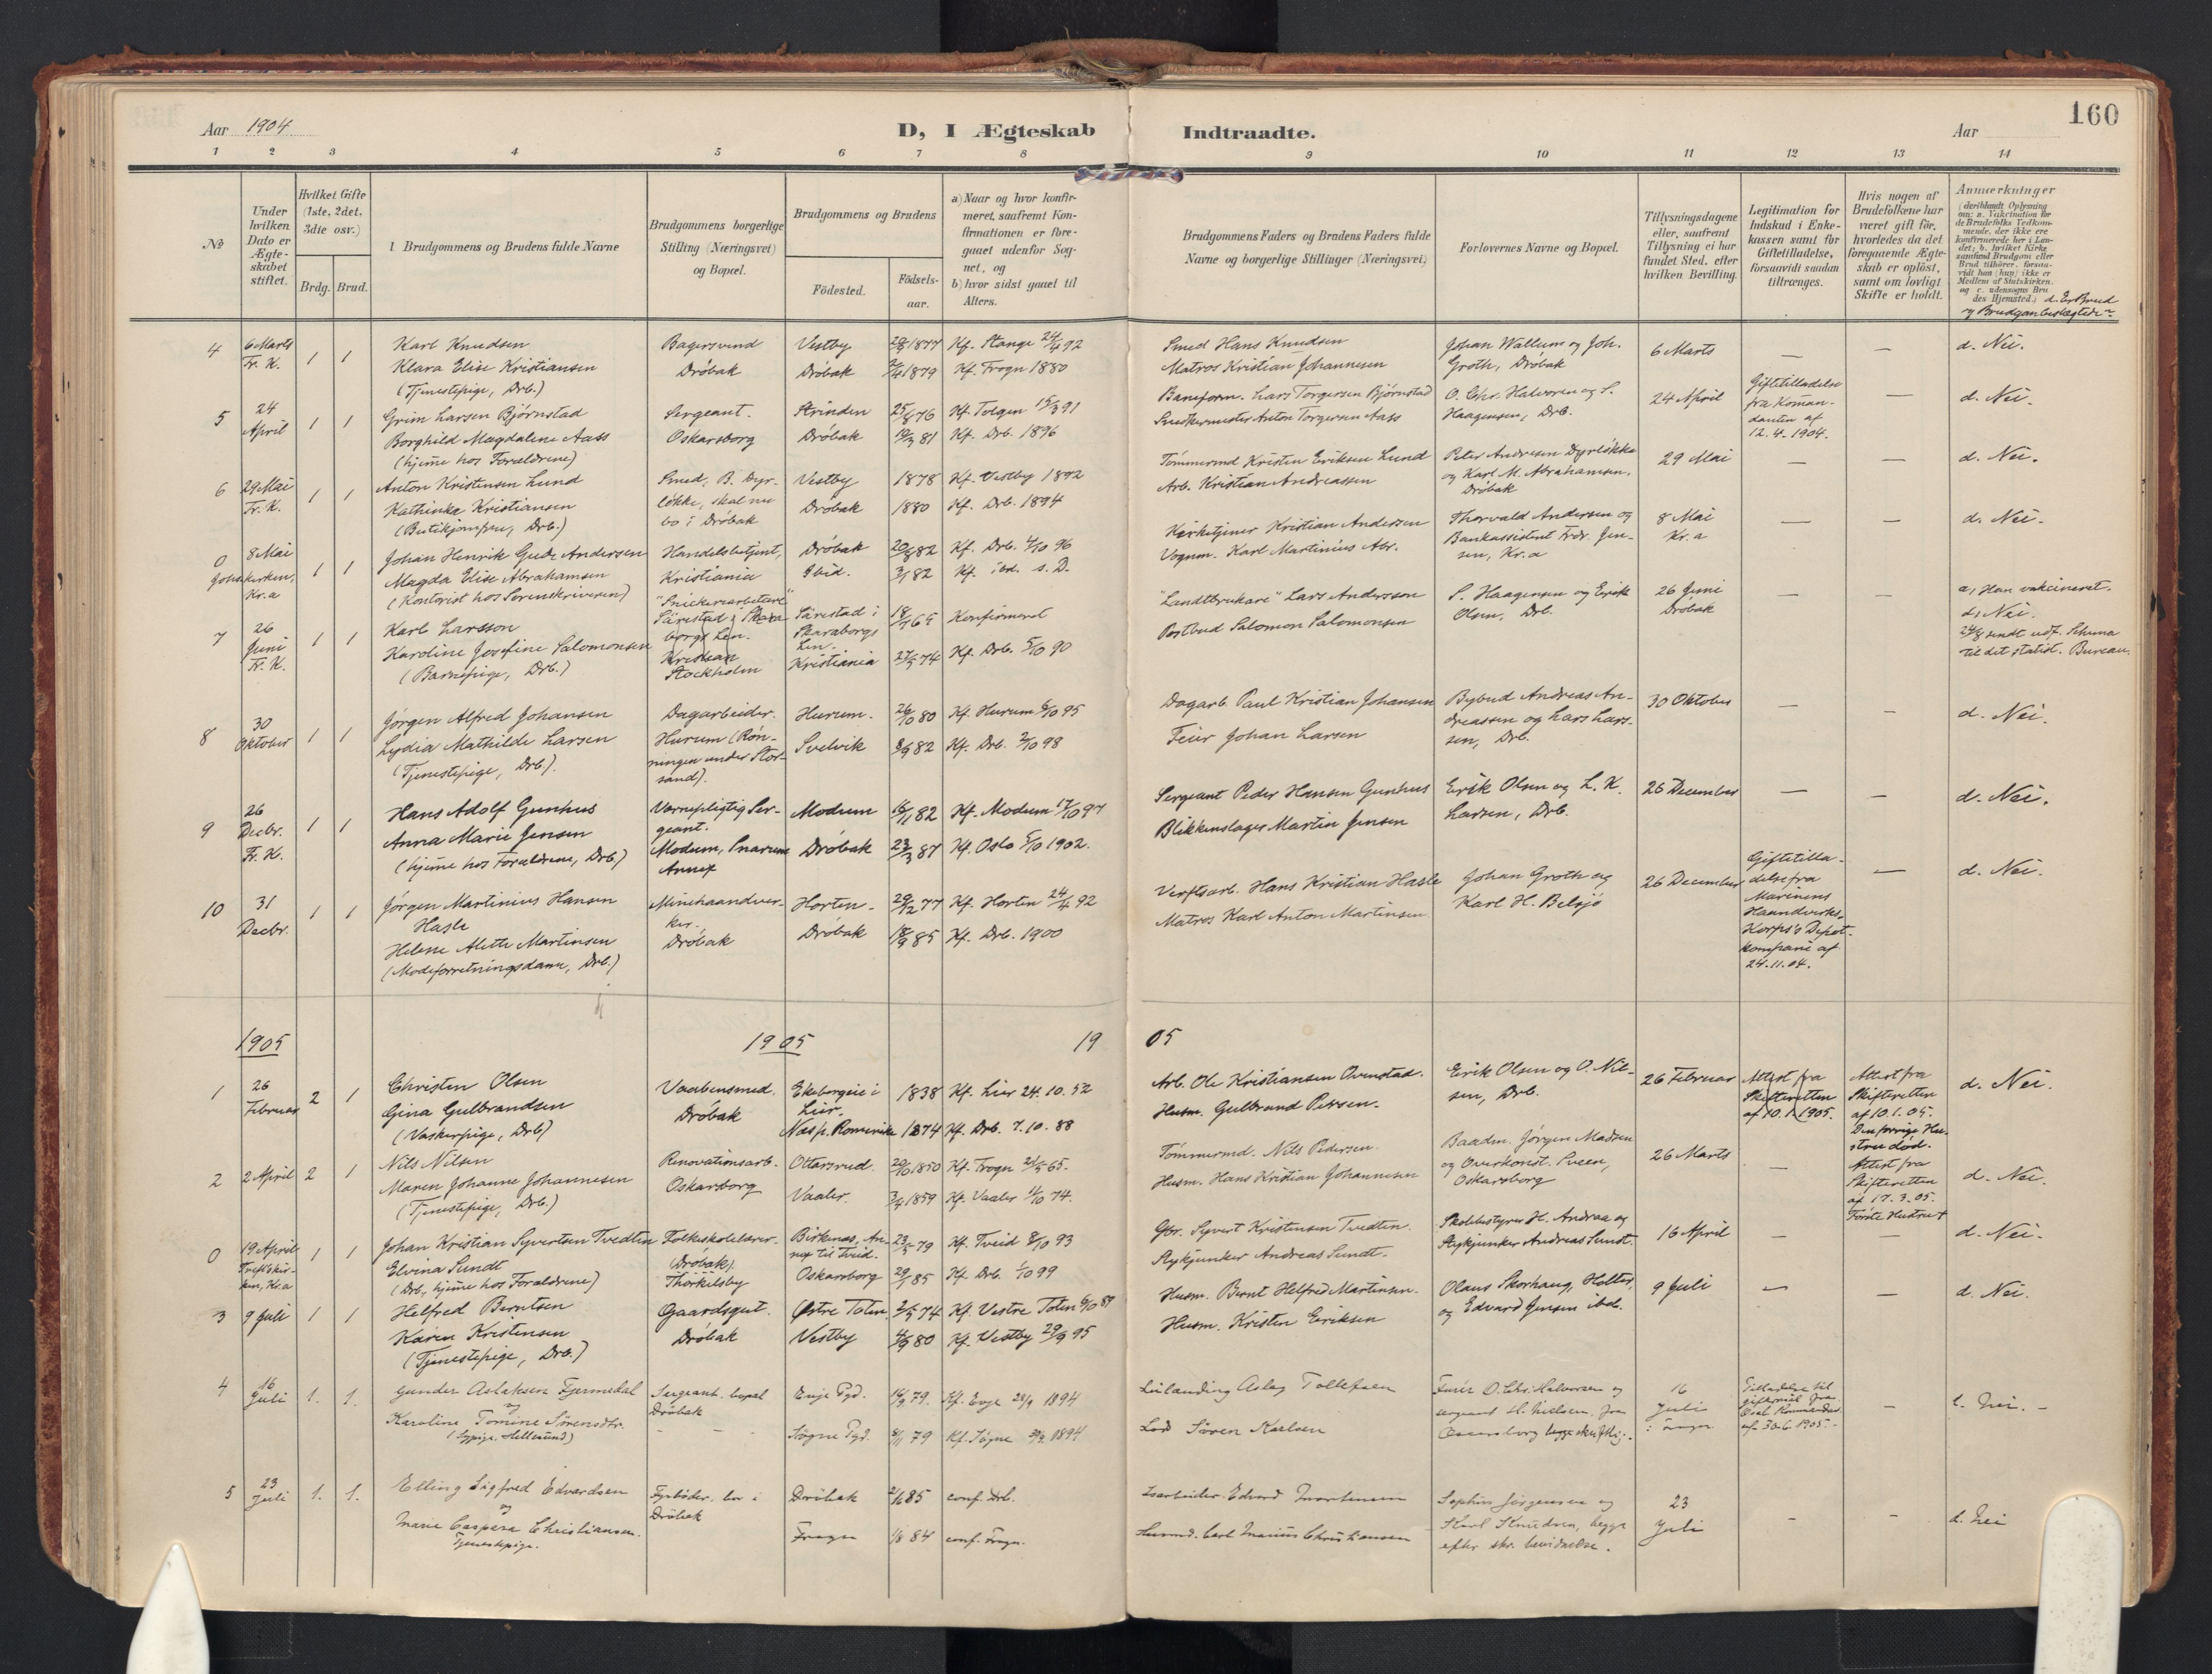 160
Aar 1904
D, I Ægteskab Indtraadte.
Aar
1 2 3 4 5 6 7 8 9 10 11 12 13 14
№
Under hvilken Dato er Ægteskabet stiftet.
Hvilket Gifte (1ste, 2det, 3die osv.)
Brdg. Brud.
Brudgommens og Brudens fulde Navne
Brudgommens borgerlige Stilling (Næringsvei) og Bopæl.
Brudgommens og Brudens
Födested.
Födsels-aar.
a) Naar og hvor konfirmeret, saafremt Konfirmationen er foregaaet udenfor Sognet, og
b) hvor sidst gaaet til Alters.
Brudgommens Faders og Brudens Faders fulde Navne og borgerlige Stillinger (Næringsvei)
Forlovernes Navne og Bopæl.
Tillysningsdagene eller, saafremt Tillysning ei har fundet Sted, efter hvilken Bevilling.
Legitimation for Indskud i Enkekassen samt for Giftetilladelse, forsaavidt saadan tiltrænges.
Hvis nogen af Brudefolkene har været gift för, hvorledes da det foregaaende Ægteskab er oplöst, samt om lovligt Skifte er holdt.
Anmærkninger (deriblandt Oplysning om: a. Vakcination for de Brudefolks Vedkommende, der ikke ere konfirmerede her i Landet; b. hvilket Kirkesamfund Brudgom eller Brud tilhörer, forsaavidt han (hun) ikke er Medlem af Statskirken, og c. udensogns Brudes Hjemsted.) d. Er Brud og Brudgom beslægtede
4 6 Marts Fr. K. 1 1
Karl Knudsen
Klara Elise Kristiansen
(Tjenestepige, Drb.)
Bagersvend
Drøbak
Vestby 1877 Kf. Stange 24/4 92
Drøbak 1879 Kf. Frogn 1880
Smed Hans Knudsen
Matros Kristian Johannesen
Johan Wallum og Joh. Groth, Drøbak
6 Marts — — d. Nei.
5 24 April 1 1
Grim Larsen Bjørnstad
Borghild Magdalene Aass
(hjemme hos Forældrene)
Sergeant.
Oskarsborg
Strinden 25/8 76 Kf. Tolgen 15/3 91
Drøbak 19/3 81 Kf. Drb. 1896
Baneform. Lars Torgersen Bjørnstad
Snedkermester Anton Torgersen Aass
O. Chr. Halvorsen og S. Haagensen, Drb.
24 April
Giftetilladelse fra Komandanten af 12.4.1904.
— d. Nei.
6 29 Mai Fr. K. 1 1
Anton Kristensen Lund
Kathinka Kristiansen
(Butikjomfru, Drb.)
Smed, B. Dyrløkke, skal nu bo i Drøbak
Vestby 1878 Kf. Vestby 1892
Drøbak 1880 Kf. Drb. 1894
Tømmermd Kristen Eriksen Lund
Arb. Kristian Andreassen
Peter Andresen Dyrløkke og Karl M. Abrahamsen, Drøbak
29 Mai — — d. Nei.
0 8 Mai Johs.kirken, Kr.a 1 1
Johan Henrik Gude Andersen
Magda Elise Abrahamsen
(Kontorist hos Sorenskriveren)
Handelsbetjent,
Kristiania
Drøbak 20/8 82 Kf. Drb. 4/10 96
Ibid. 3/1 82 Kf. ibd. s. D.
Kirketjener Kristian Andersen
Vognm. Karl Martinius Abr.
Thorvald Andersen og Bankassistent Frdr. Jensen, Kr.a
8 Mai Kr.a — — d. Nei.
7 26 Juni Fr. K. 1 1
Karl Larsson
Karoline Josefine Salomonsen
(Barnepige, Drb.)
"Snickerearbetare" Särestad i Skaraborgs Len.
Stockholm
Särestad i Skaraborgs Len. 69 Konfirmeret
Kristiania 27/5 74 Kf. Drb. 5/10 90
"Landtbrukare" Lars Andersson
Postbud Salomon Salomonsen
S. Haagensen og Erik Olsen, Drb.
26 Juni Drøbak — —
a, Han vakcineret.
d, Nei.
24/8 sendt udf. Schema til det statist. Bureau.
8 30 Oktober 1 1
Jørgen Alfred Johansen
Lydia Mathilde Larsen
(Tjenestepige, Drb.)
Dagarbeider.
Hurum (Rønningen under Storsand).
Hurum. 26/10 80 Kf. Hurum 6/10 95
Svelvik 8/9 82 Kf. Drb. 2/10 98
Dagarb. Paul Kristian Johansen
Feier Johan Larsen
Bybud Andreas Andreassen og Lars Larsen, Drb.
30 Oktober — — d. Nei.
9 26 Decbr. Fr. K. 1 1
Hans Adolf Gunhus
Anna Marie Jensen
(hjemme hos Forældrene, Drb.)
Værnepligtig Sergeant.
Modum, Snarum Annex
Modum 16/11 82 Kf. Modum 17/10 97
Drøbak 23/3 87 Kf. Oslo 5/10 1902.
Sergeant Peder Hansen Gunhus
Blikkenslager Martin Jensen
Erik Olsen og L. K. Larsen, Drb.
26 December — — d. Nei.
10 31 Decbr. 1 1
Jørgen Martinius Hansen Hasle
Helene Alette Martinsen
(Modeforretningsdame, Drb.)
Minehaandverker.
Drøbak
Horten 29/12 77 Kf. Horten 24/4 92
Drøbak 18/9 85 Kf. Drb. 1900
Verftsarb. Hans Kristian Hasle
Matros Karl Anton Martinsen
Johan Groth og Karl H. Belsjø
26 December
Giftetilladelse fra Marinens Haandverks-Korps's Depotkompani af 24.11.04.
— d. Nei.
1905 1905 1905
1 26 Februar 2 1
Christen Olsen
Gina Gulbrandsen
(Vaskerpige, Drb)
Vaabensmed.
Drøbak
Ekeborgeie i Lier. 1838 Kf. Lier 24.10.52
Nasp. Romerike 1874 Kf. Drb. 7.10.88
Arb. Ole Kristiansen Ovenstad.
Husm. Gulbrand Persen.
Erik Olsen og O. Nilsen, Drb.
26 Februar
Attest fra Skifteretten af 10.1.1905.
Attest fra Skifteretten af 10.1.05. Den forrige Hustru død.
d. Nei.
2 2 April 2 1
Nils Nilsen
Maren Johanne Johannesen
(Tjenestepige, Drb.)
Renovationsarb.
Oskarsborg
Ottarsrud. 1850 Kf. Frogn 21/5 65.
Vaaler. 1859 Kf. Vaaler 11/10 74.
Tømmermd. Nils Pedersen.
Husm. Hans Kristian Johannesen
Baadm. Jørgen Madsen og Overkonst. Sveen, Oskarsborg
26 Marts —
Attest fra Skifteretten af 17.3.05. Første Hustru †
d. Nei.
0 19 April Trefl.kirken, Kr.a 1 1
Johan Kristian Syvertsen Tvedten
Elvina Sundt
(Drb., hjemme hos Forældrene)
Folkeskolelærer.
(Drøbak)
Thorkilsby
Birkenes, Annex til Tveid. 23/5 79 Kf. Tveid 8/10 93
Oskarsborg 29/1 85 Kf. Drb. 1/10 99
Gbr. Syvert Kristensen Tvedten.
Stykjunker Andreas Sundt.
Skolebestyrer H. Andraa og Stykjunker Andreas Sundt.
16 April — — d. Nei.
3 9 Juli 1 1
Helfred Berntsen
Karen Kristensen
(Tjenestepige, Drb.)
Gaardsgut.
Drøbak
Østre Toten. 2/5 74 Kf. Vestre Toten 6/10 89
Vestby 4/9 80 Kf. Vestby 29/9 95
Husm. Bernt Helfred Martinsen.
Husm. Kristen Eriksen
Olaus Skorhaug, Holter, og Edvard Jensen ibd.
9 Juli — — d. Nei.
4 16 Juli 1. 1.
Gunder Aslaksen Fjermedal
og
Karoline Tomine Sørensdtr.
Sergeant, bopæl Drøbak
Evje Pgd. 79. Kf. Evje 1894
Søgne Pgd. 79 Kf. Søgne 1894
Leilænding Aslag Tollefsen
Lods Søren Karlsen
Furér O. Chr. Halvorsen og sergeant H. Nielsen, fra Oscarsborg begge skriftlig.
16 Juli
Tilladelse til giftermål fra Kommandant af 30-6 1905.
— d. Nei.
5 23 Juli 1. 1.
Elling Sigfred Edvardsen
og
Marie Caspera Christiansen.
Tjenestepige.
Fyrbøder, bor i Drøbak
Drøbak 85 conf. Drb.
Frogn 1/8 84 conf. Frogn.
Isarbeider Edvard Martinsen
Carl Marius Christiansen
Sophus Jørgensen og Karl Knudsen, begge efter skr. bevidnelse.
23 Juli — — d. Nei